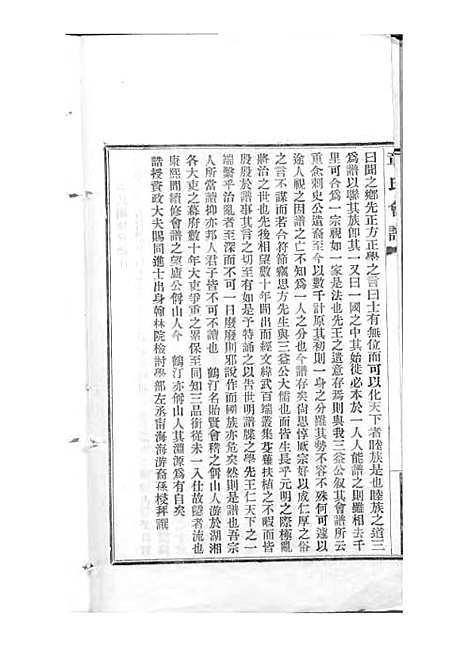 章氏會譜
曰聞之鄉先正方正學之言曰士有無位而可以化天下者睦族是也睦族之道三
爲譜以聯其族卽其一又曰一國之中其始徙必本於一人人能譜之則雖相去千
里可合爲一宗視如一家是法也先王之遺意存焉則與我三益公叙其會譜所云
重念刺史公遺裔至今以數千計原其初則一身之分雖其勢不容不殊何可遽以
途人視之因譜之亡不知爲一人之分也今譜存矣尙思惇厥宗好以成仁厚之俗
之言不謀而若合符節竊思方先生與三益公大儒也而皆生長乎元明之際極亂
將治之世也先後相望數十年間出而經文緯武百端叢集芟薙扶植之不暇而皆
殷殷於譜事其言之切至有如是予特誦之以吿世明譜牒之學先王仁天下之一
端繫乎治亂者至深而不可一日廢廢則邪說作而國族亦危矣然則是譜也吾宗
人所當譜抑亦邦人君子皆不可不讀也　鶴汀名貽賢會稽之偁山人游於湖湘
各大吏之幕府數十年大吏爭重之累保至同知三品銜從未一入仕故隱者流也
康熙間續修會譜之望廬公偁山人今　鶴汀亦偁山人其淵源爲有自矣
誥授資政大夫賜同進士出身翰林院檢討學部左丞甯海海游裔孫梫拜譔